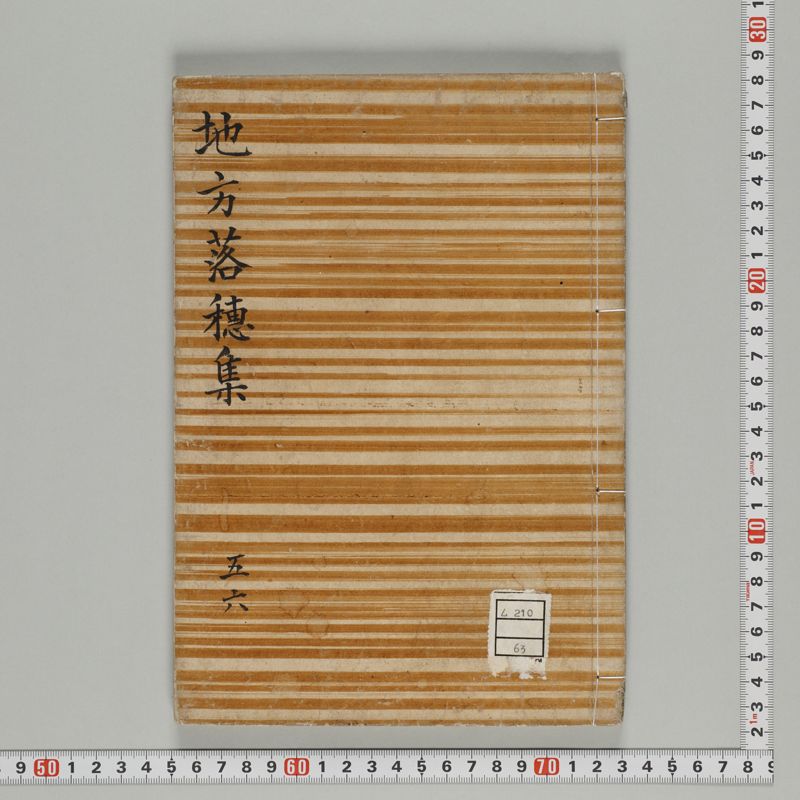 地方落穂集
五六
4 210
63
9 50 1 2 3 4 5 6 7 8 9 60 1 2 3 4 5 6 7 8 9 70 1 2 3 4 5 6 7 8 9
1 30 9 8 7 6 5 4 3 2 1 20 9 8 7 6 5 4 3 2 1 10 9 8 7 6 5 4 3 2
1m
JAPAN